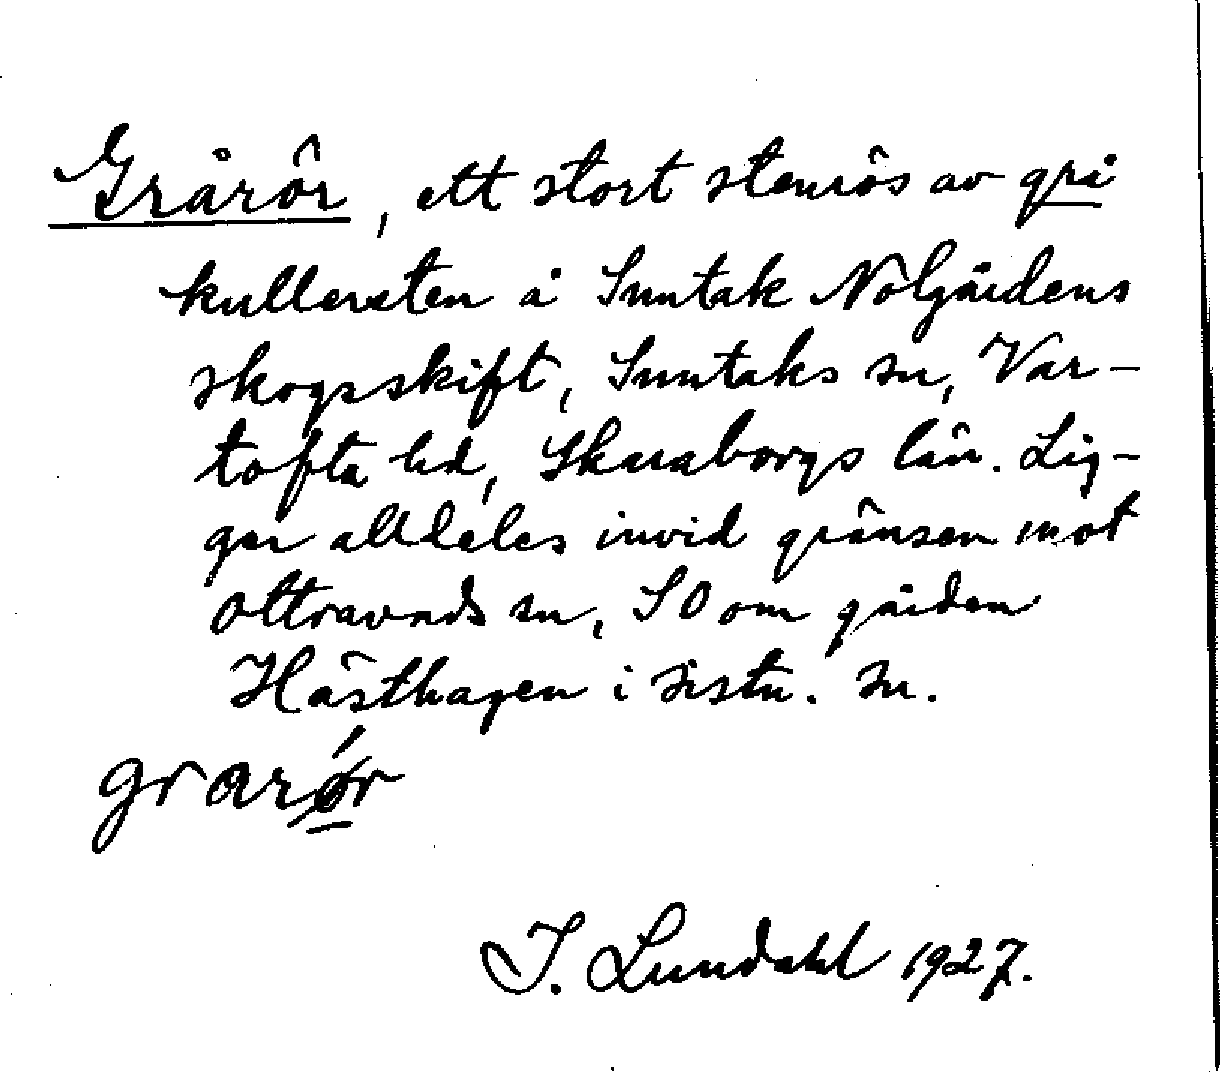 Grårör, ett stort stenrös av grå
kullersten å Suntak Nolgårdens
skogsskift, Suntaks sn, Var-
tofta hd, Skaraborgs län. Lig-
ger alldeles invid gränsen mot
Ottravads sn, SO om gården
Hästhagen i sistn. sn.
grarǿr
I. Lundahl 1927.